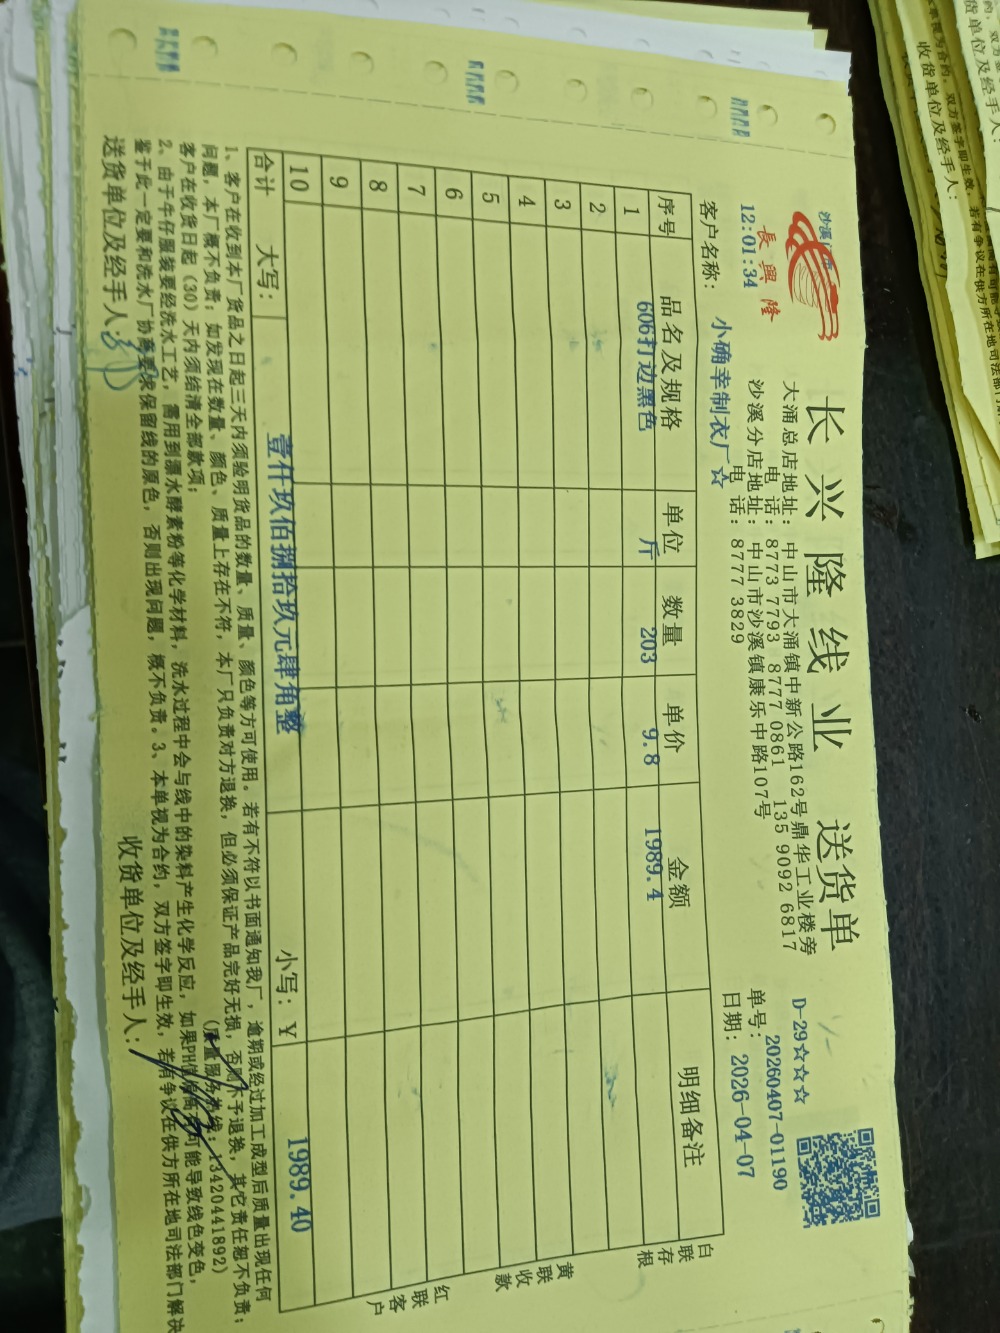 長興隆
长兴隆线业 送货单
大涌总店地址: 中山市大涌镇中新公路162号鼎华工业楼旁
电 话: 8773 7793 8777 0861 135 9092 6817
沙溪分店地址: 中山市沙溪镇康乐中路107号
电 话: 8777 3829
D-29☆☆☆
单号: 20260407-01190
日期: 2026-04-07
12:01:34
客户名称: 小确幸制衣厂☆
序号 品名及规格 单位 数量 单价 金额 明细备注
1 606打边黑色 斤 203 9.8 1989.4
2
3
4
5
6
7
8
9
10
合计 大写: 壹仟玖佰捌拾玖元肆角整 小写: ¥ 1989.40
白联存根
黄联收款
红联客户
1、客户在收到本厂货品之日起三天内须验明货品的数量、质量、颜色等方可使用。若有不符以书面通知我厂，逾期或经过加工成型后质量出现任何
问题，本厂概不负责；如发现在数量、颜色、质量上存在不符，本厂只负责对方退换，但必须保证产品完好无损，否则不予退换，其它责任恕不负责；
客户在收货日起（30）天内须结清全部款项； (质量服务热线: 13420441892)
2、由于牛仔服装要经洗水工艺，需用到漂水酵素粉等化学材料，洗水过程中会与线中的染料产生化学反应，如果PH值偏高有可能导致线色变色，
鉴于此一定要和洗水厂协商要求保留线的原色，否则出现问题，概不负责。3、本单视为合约，双方签字即生效，若有争议在供方所在地司法部门解决
送货单位及经手人: 收货单位及经手人:
收货单位及经手人:
收货单位及经手人: